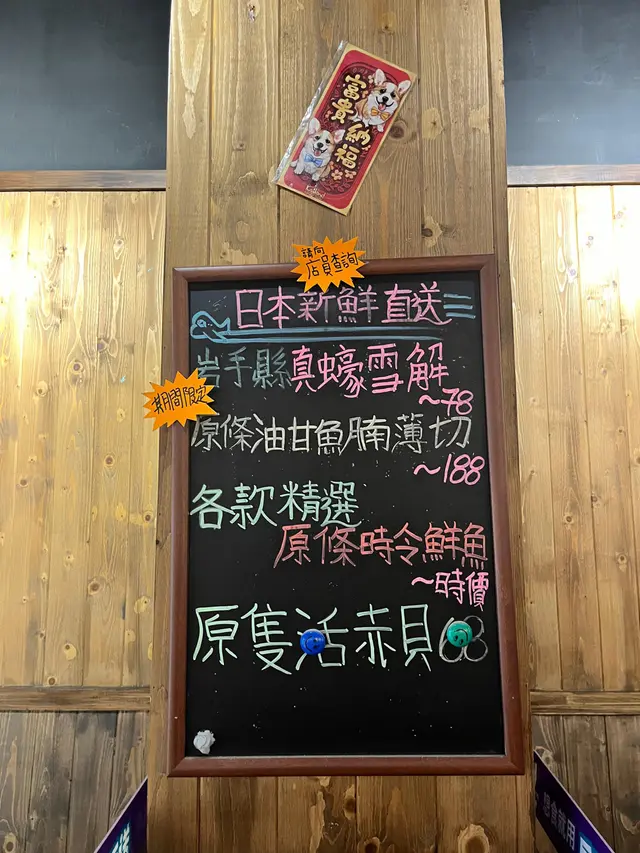 富貴納福
請向
店員查詢
日本新鮮直送
岩手縣真蠔雪解
~78
期間限定
原條油甘魚腩薄切
~188
各款精選
原條時令鮮魚
~時價
原隻活赤貝68